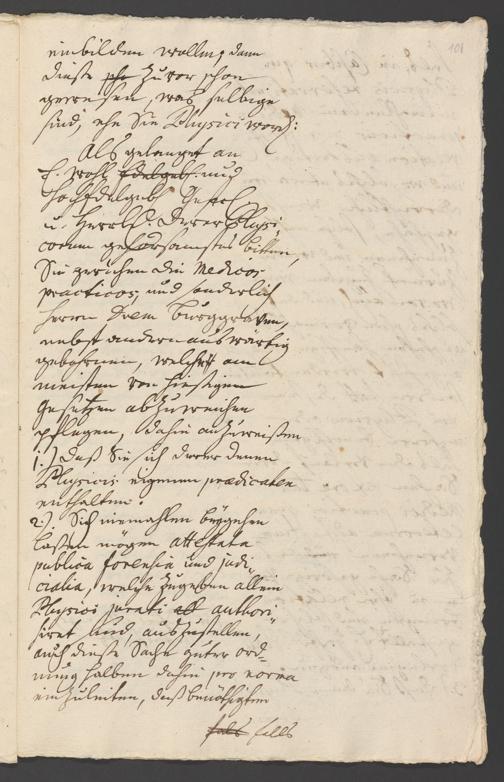 101
einbilden wollen, dann
dieße zuvor schon
gewesen, was selbige
sind, ehe Sie Physici word:
Als gelanget an
E. Wohl und
Gestr:
u. Herrl: Derer Physi-
corum gehorsamstes bitten,
Sie geruhen die Medicos
practicos, und sonderlich
Herrn Burggraven,
nebst andern auswärtig
gebohrnen, welche am
meisten von hießigen
Gesetzen abzuweichen
pflegen, dahin anzuweißen
1.) Daß Sie sich derer denen
Physicis eigenen praedicaten
enthalten.
2.) Sich niemahlen beygehen
laßen mögen attestata
publica forensia und judi-
cialia, welche zugeben allein
Physici jurati authori-
siret sind, auszustellen,
auch dieße Sache guter ord-
nung halben dahin pro norma
einzuleiten, daß benöthigten
falls falls